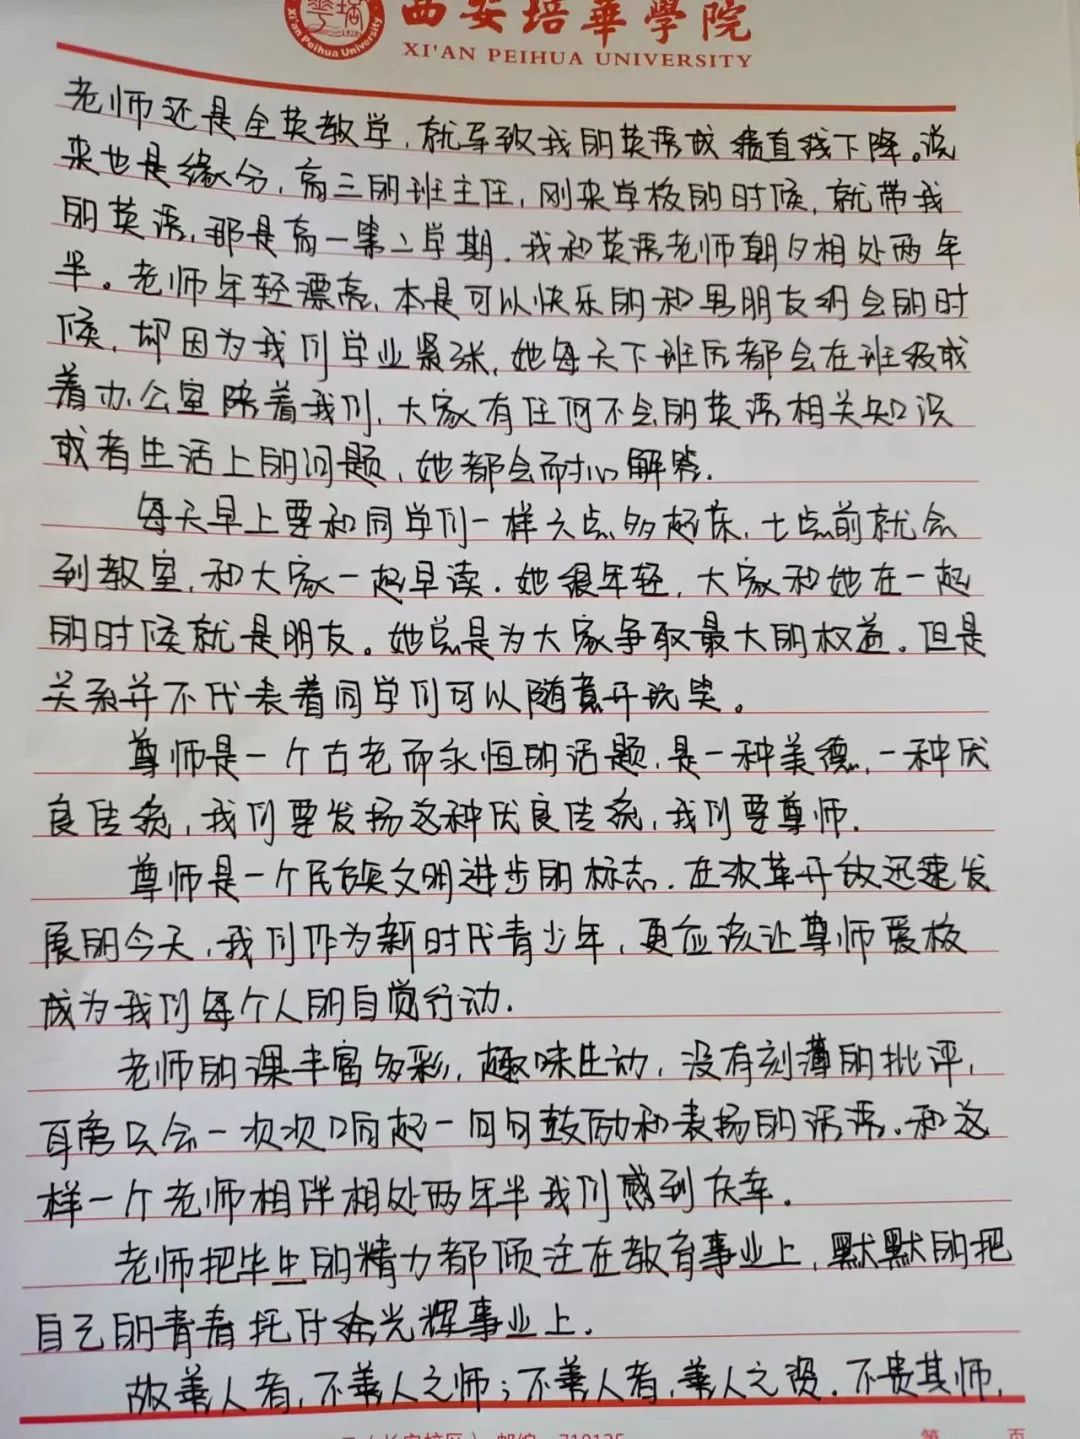 西安培華學院
XI'AN PEIHUA UNIVERSITY
Xi'an Peihua University
老师还是全英教学，就导致我的英语成绩直线下降。说
来也是缘分，高三的班主任，刚来学校的时候，就带我
的英语，那是高一第二学期。我和英语老师朝夕相处两年
半。老师年轻漂亮，本是可以快乐的和男朋友约会的时
候，却因为我们学业紧张，她每天下班后都会在班级或
着办公室陪着我们，大家有任何不会的英语相关知识
或者生活上的问题，她都会耐心解答.
每天早上要和同学们一样六点多起床，七点前就会
到教室，和大家一起早读．她很年轻，大家和她在一起
的时候就是朋友。她总是为大家争取最大的权益。但是
关系并不代表着同学们可以随意开玩笑。
尊师是一个古老而永恒的话题，是一种美德，一种优
良传统，我们要发扬这种优良传统，我们要尊师.
尊师是一个民族文明进步的标志．在改革开放迅速发
展的今天，我们作为新时代青少年，更应该让尊师爱校
成为我们每个人的自觉行动.
老师的课丰富多彩，趣味生动，没有刻薄的批评，
耳旁只会一次次响起一句句鼓励和表扬的话语．和这
样一个老师相伴相处两年半我们感到庆幸．
老师把毕生的精力都倾注在教育事业上，默默的把
自己的青春托付给光辉事业上．
故善人者，不善人之师；不善人者，善人之资．不贵其师，
邮编 710125
第 页